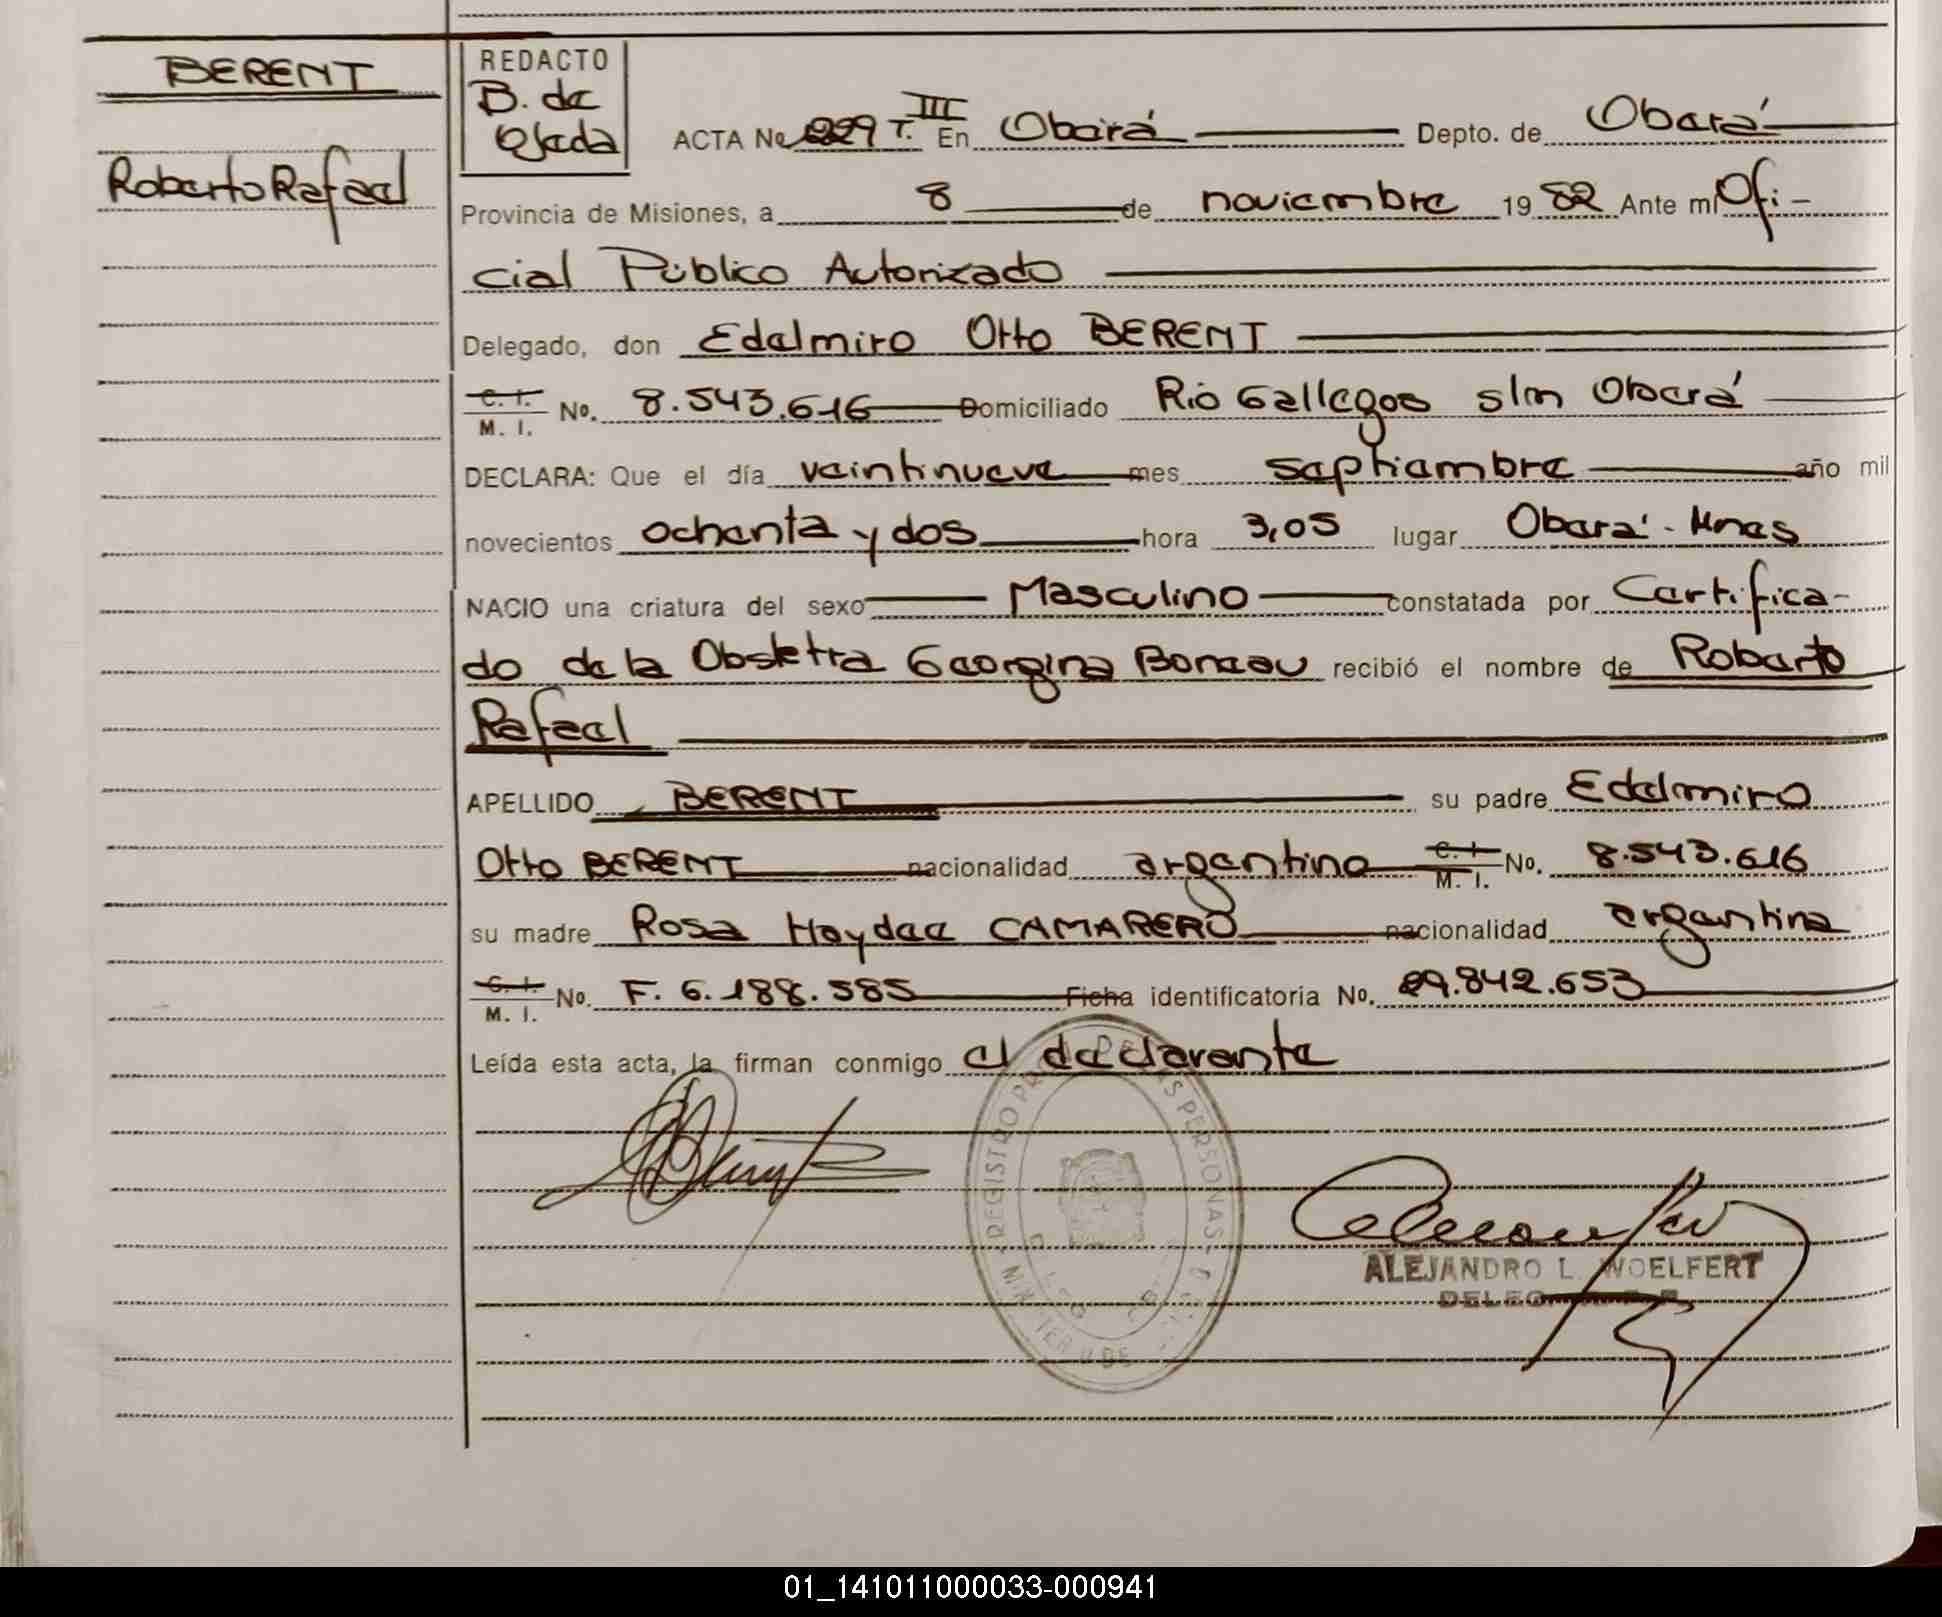 BERENT
Roberto Rafael
REDACTO
B. de
Ojeda
ACTA No 229 T. III En Oberá Depto. de Oberá
Provincia de Misiones, a 8 de noviembre 1982 Ante mí Ofi-
cial Público Autorizado
Delegado, don Edelmiro Otto BERENT
C. I. M. I. No. 8.543.616 Domiciliado Rio Gallegos s/n Oberá
DECLARA: Que el día veintinueve mes septiembre año mil
novecientos ochenta y dos hora 3,05 lugar Oberá - Mnes
NACIO una criatura del sexo Masculino constatada por Certifica-
do de la Obstetra Georgina Boneau recibió el nombre de Roberto
Rafael
APELLIDO BERENT su padre Edelmiro
Otto BERENT nacionalidad argentino C. I. M. I. No. 8.543.616
su madre Rosa Haydee CAMARERO nacionalidad argentina
C. I. M. I. No. F. 6.188.585 Ficha identificatoria No. 29.842.653
Leída esta acta, la firman conmigo el declarante
REGISTRO PERSONAS
ALEJANDRO L. WOELFERT
01_141011000033-000941